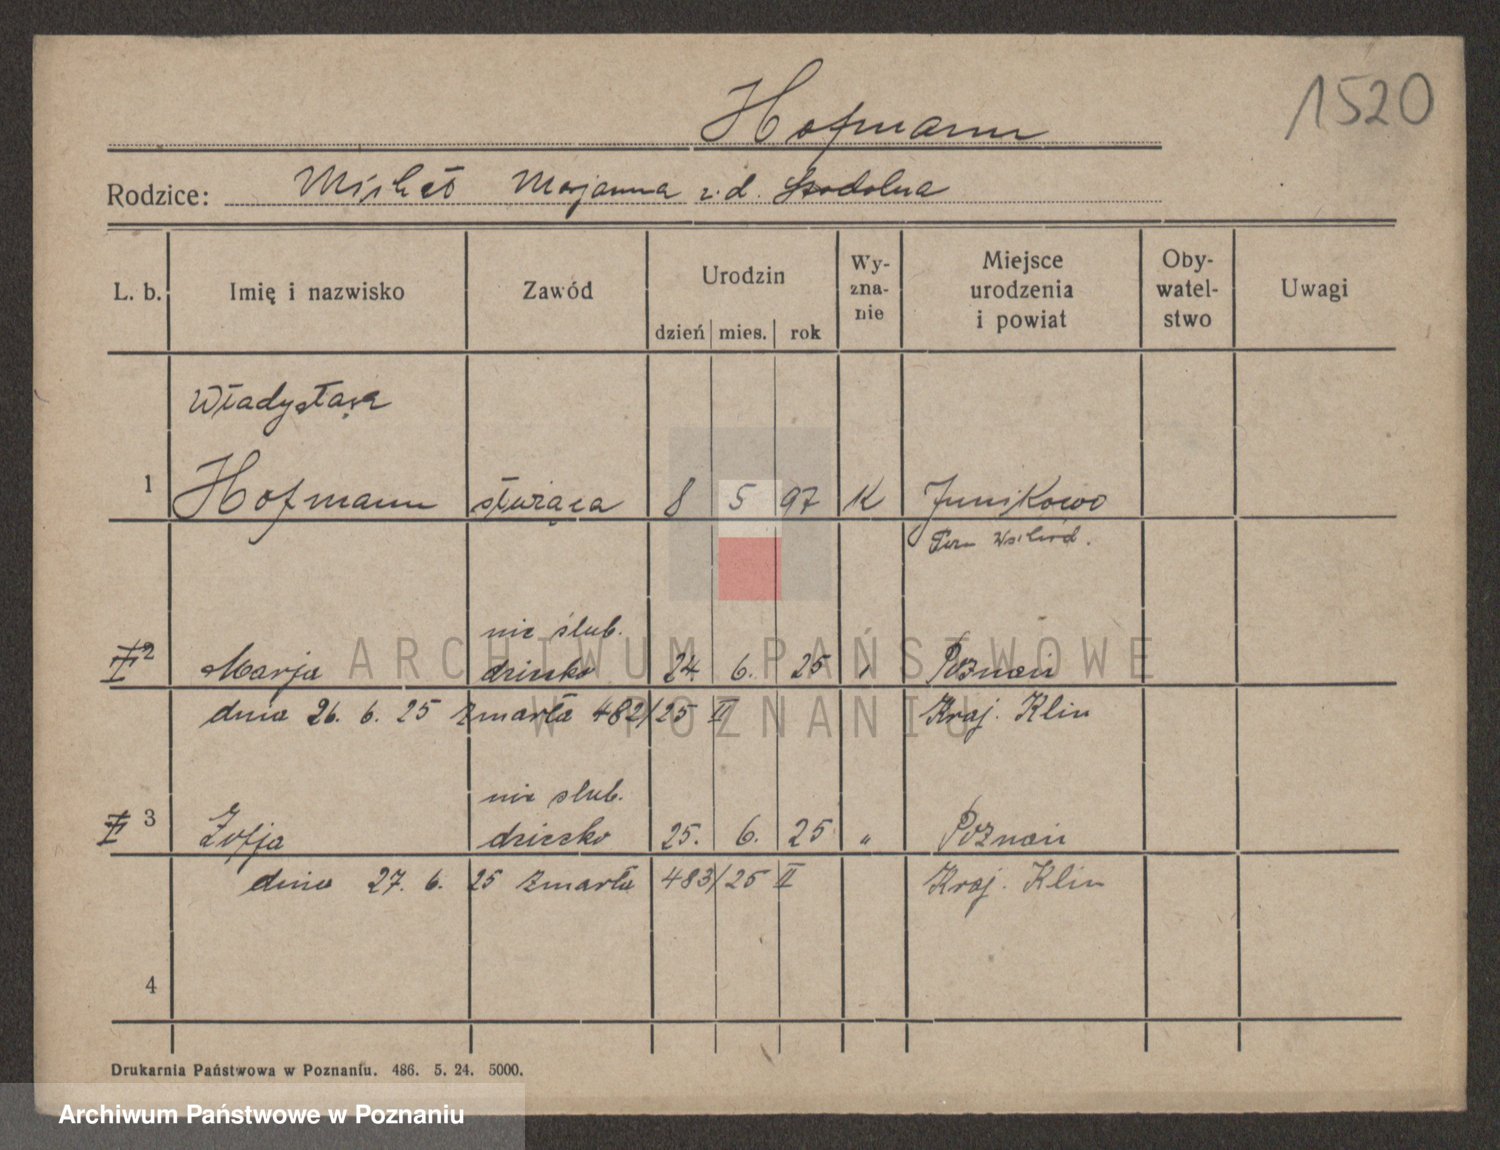 Hofmann
1520
Rodzice: Michał Marjanna z. d. Szodolna
L. b. Imię i nazwisko Zawód Urodzin dzień mies. rok Wy-zna-nie Miejsce urodzenia i powiat Oby-watel-stwo Uwagi
Władysława
1 Hofmann służąca 8 5 97 K Junikowo
Pozn Wschód.
nie ślub.
II 2 Marja dziecko 24. 6. 25 " Poznań
dnia 26. 6. 25 zmarła 482/25 II Kraj. Klin
nie ślub.
II 3 Zofja dziecko 25. 6. 25 " Poznań
dnia 27. 6. 25 zmarła 483/25 II Kraj. Klin
4
Drukarnia Państwowa w Poznaniu. 486. 5. 24. 5000.
ARCHIWUM PAŃSTWOWE
W POZNANIU
Archiwum Państwowe w Poznaniu